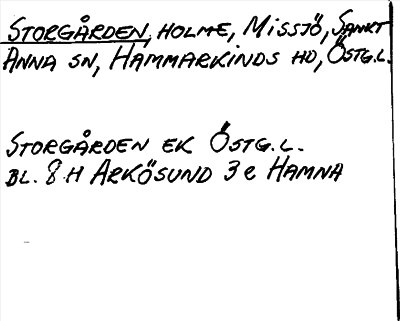 STORGÅRDEN, HOLME, MISSJÖ, SANKT
ANNA SN, HAMMARKINDS HD, ÖSTG.L.
STORGÅRDEN EK ÖSTG.L.
BL. 8 H ARKÖSUND 3 e HAMNA